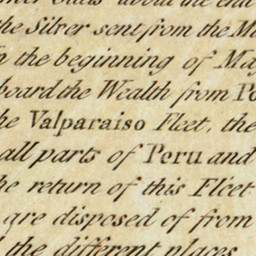 about the end
the Silver sent from the
the beginning of
board the Wealth from
Valparaiso Fleet, the
all parts of Peru and
return of this Fleet
are disposed of from
the different places